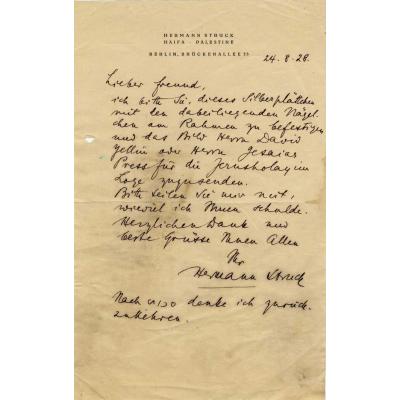 HERMANN STRUCK
HAIFA - PALESTINE
BERLIN, BRÜCKENALLEE 33
24. 8. 28.
Lieber Freund,
ich bitte Sie, dieses Silberplättchen
mit den dabeiliegenden Nägel-
chen am Rahmen zu befestigen
und das Bild Herrn David
Yellin oder Herrn Jesaias
Press für die Jerusholayim
Loge zuzusenden.
Bitte teilen Sie mir mit,
wieviel ich Ihnen schulde.
Herzlichen Dank und
beste Grüsse Ihnen Allen
Ihr
Hermann Struck
Nach denke ich zurück-
zukehren.